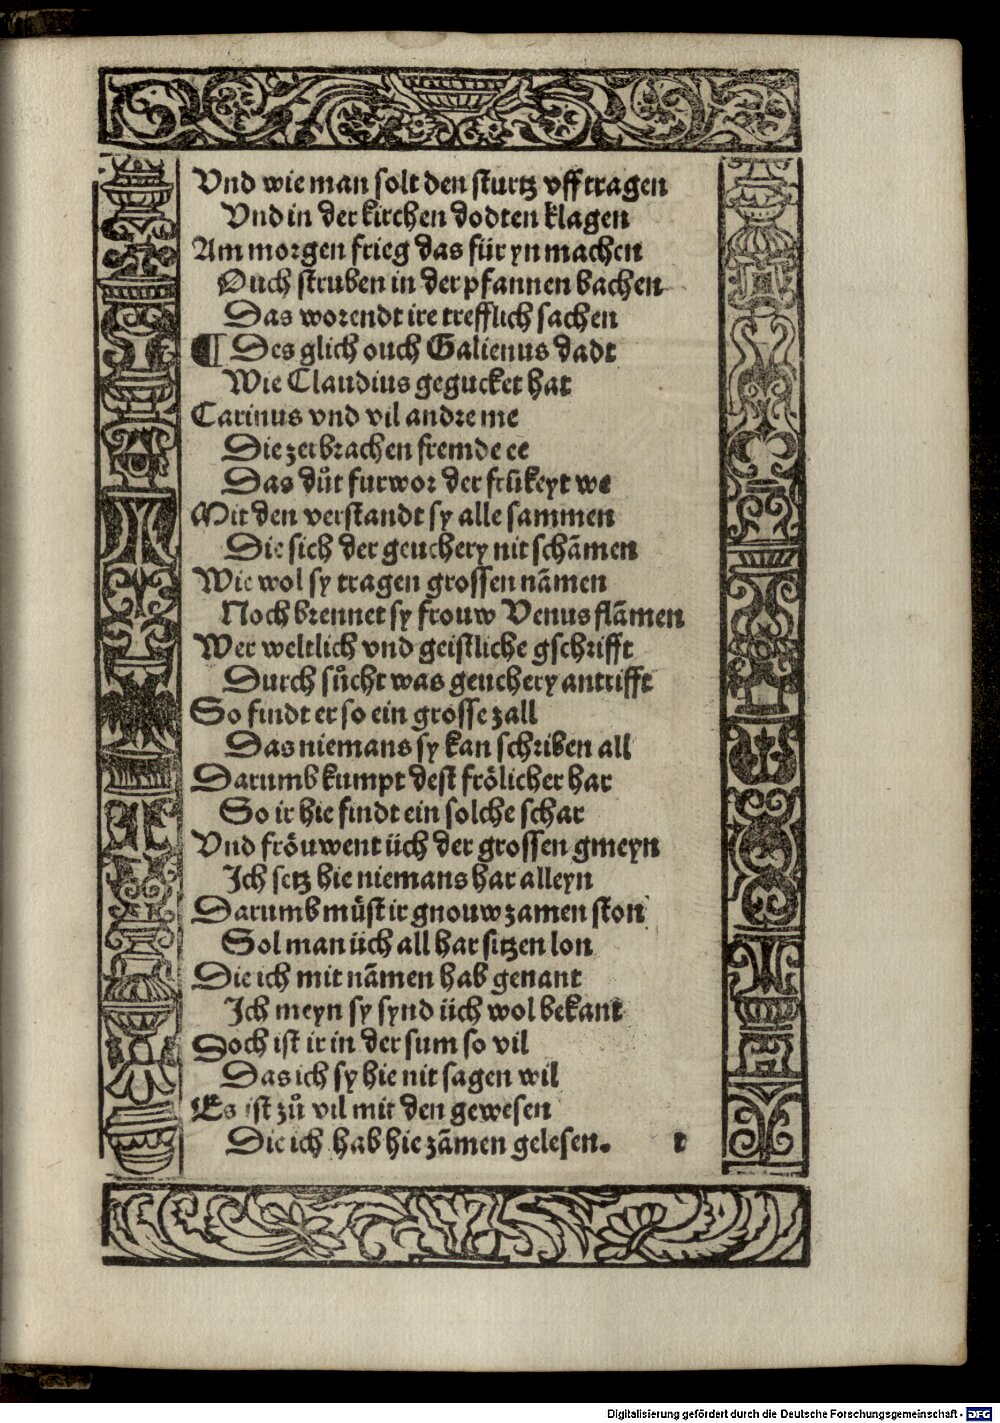 Vnd wie man solt den sturtz vff tragen
Vnd in der kirchen dodten klagen
Am morgen frieg das für yn machen
Ouch struben in der pfannen bachen
Das worendt ire trefflich sachen
¶ Des glich ouch Galienus dadt
Wie Claudius gegucket hat
Carinus vnd vil andre me
Die zerbrachen fremde ee
Das důt furwor der frűkeyt we
Mit den verstandt sy alle sammen
Die sich der geuchery nit schāmen
Wie wol sy tragen grossen nāmen
Noch brennet sy frouw Venus flāmen
Wer weltlich vnd geistliche gschrifft
Durch sůcht was geuchery antrifft
So findt er so ein grosse zall
Das niemans sy kan schriben all
Darumb kumpt dest frölicher har
So ir hie findt ein solche schar
Vnd fröuwent üch der grossen gmeyn
Ich setz hie niemans har alleyn
Darumb müst ir gnouw zamen ston
Sol man üch all har sitzen lon
Die ich mit nāmen hab genant
Ich meyn sy synd üch wol bekant
Doch ist ir in der sum so vil
Das ich sy hie nit sagen wil
Es ist zů vil mit den gewesen
Die ich hab hie zāmen gelesen. r
Digitalisierung gefördert durch die Deutsche Forschungsgemeinschaft - DFG